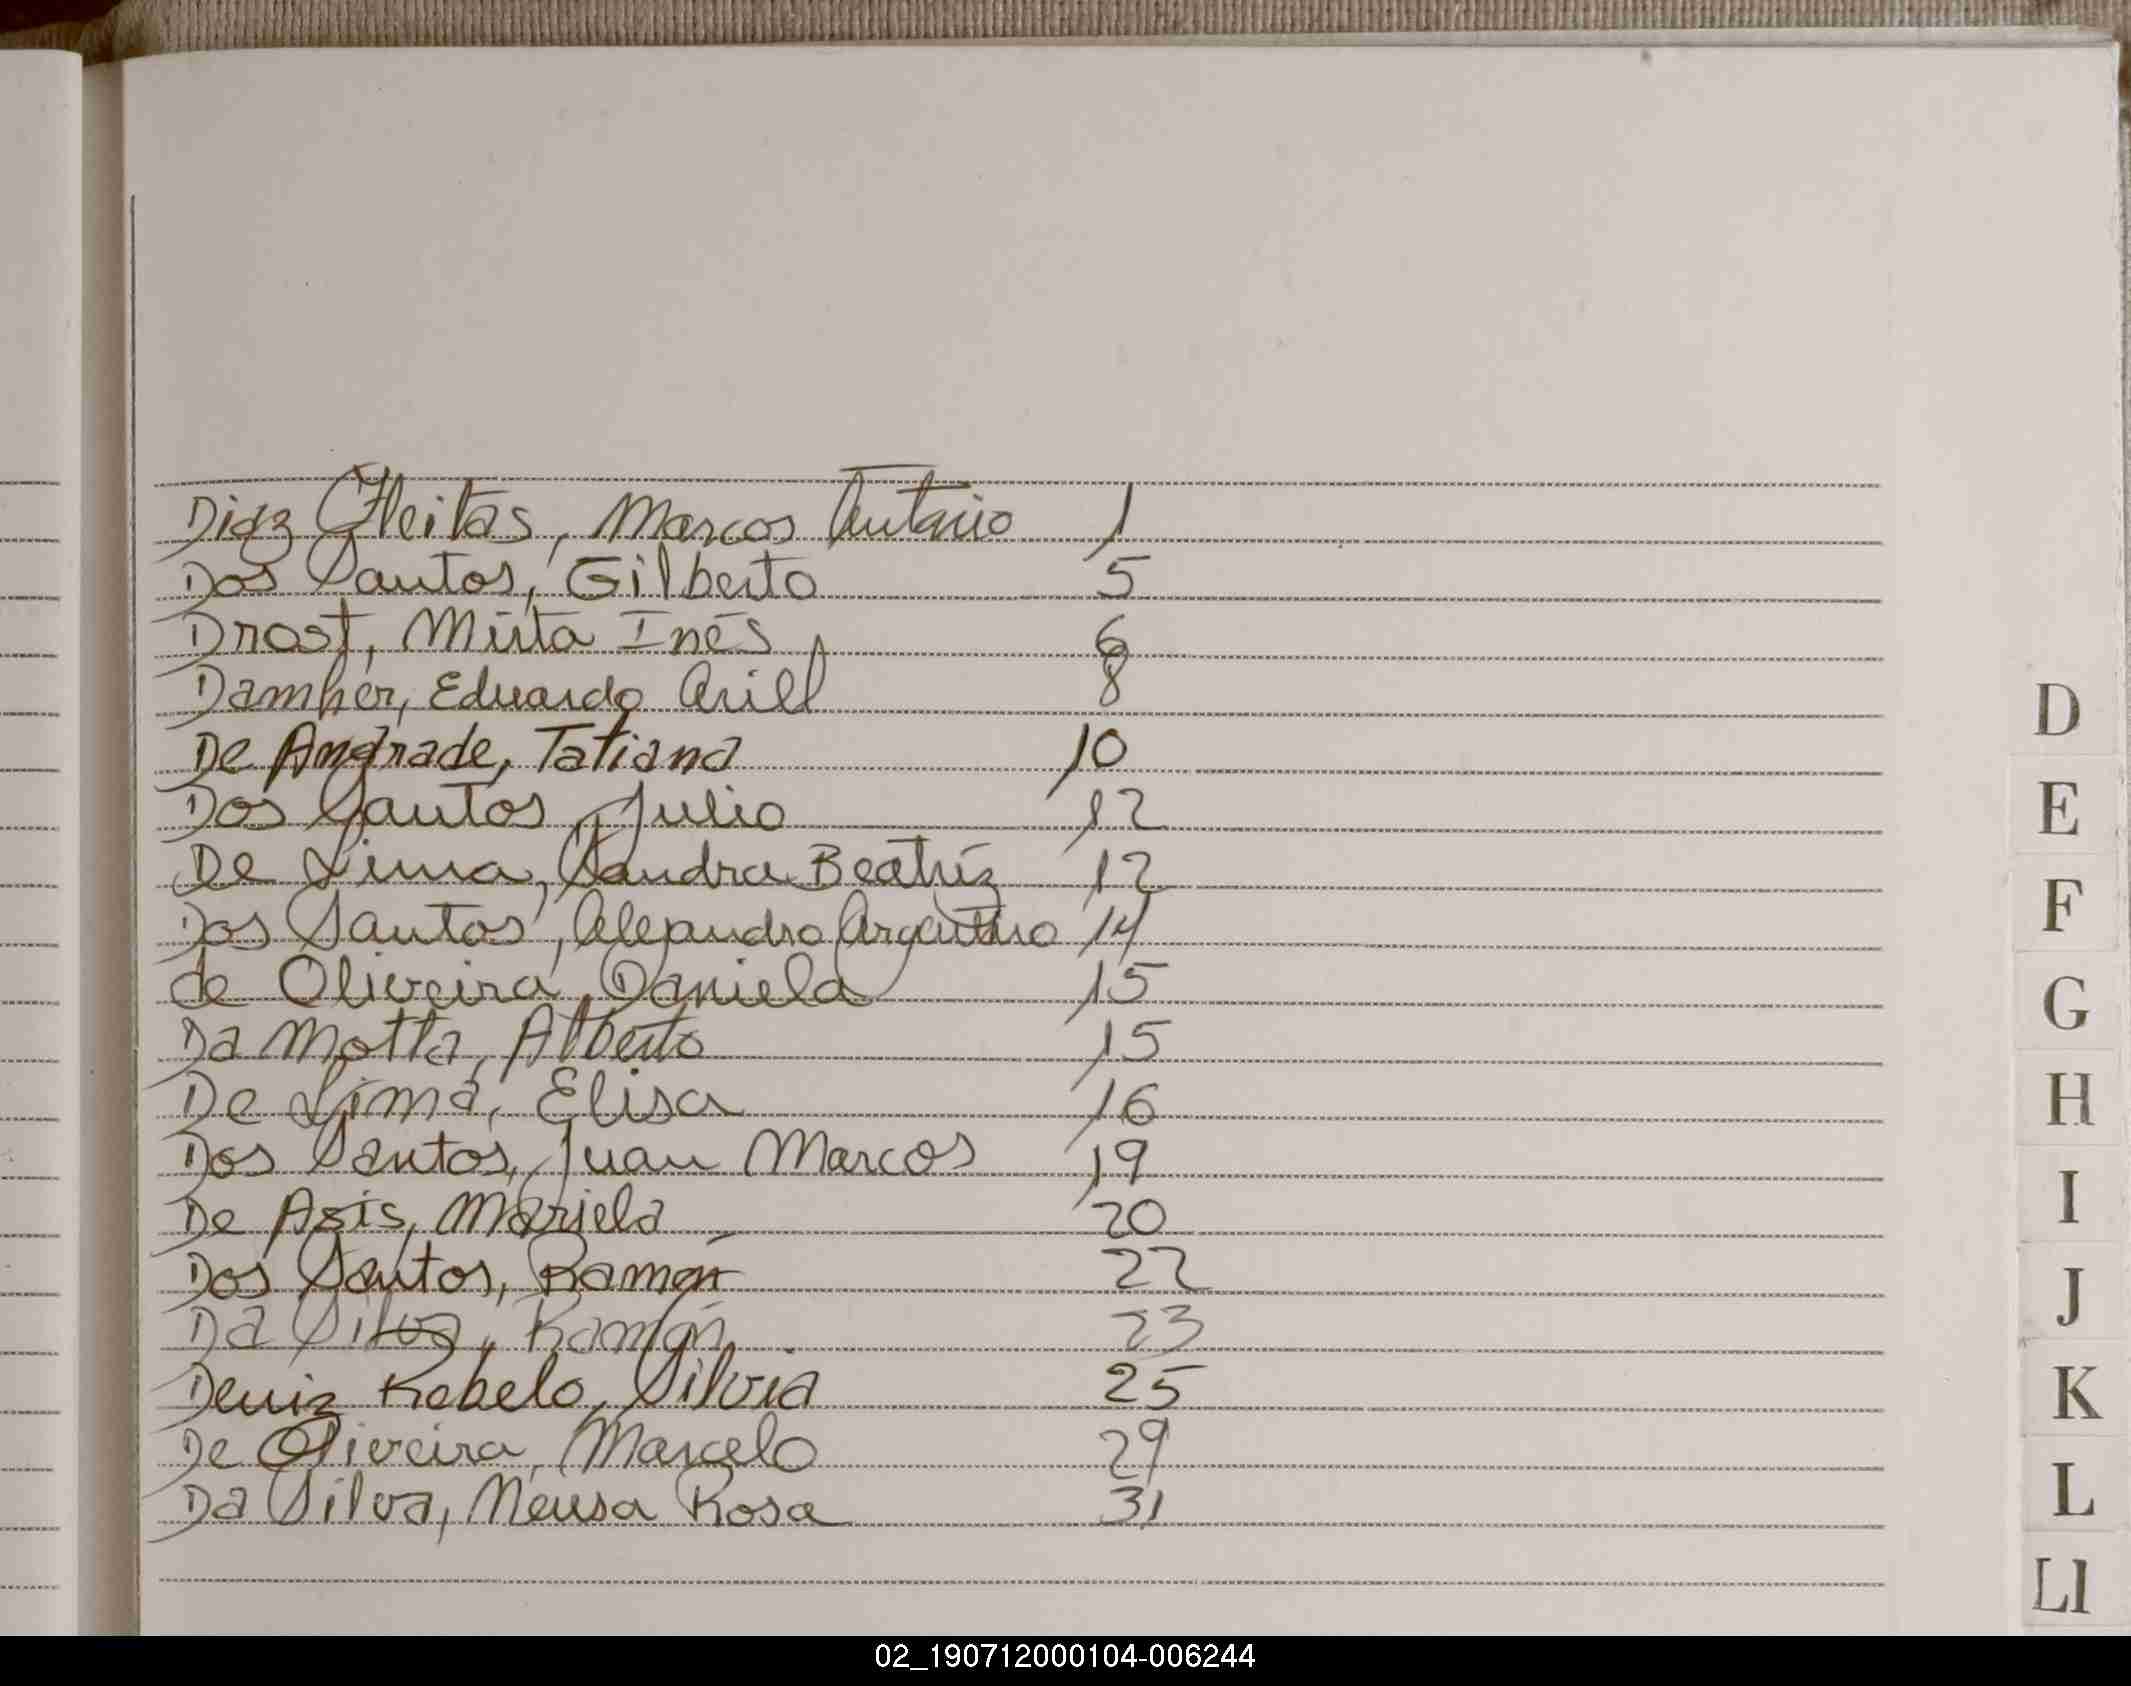 Diaz Fleitas, Marcos Antonio 1
Dos Santos, Gilberto 5
Drost, Mirta Inés 6
Eduardo 8
De Andrade, Tatiana 10
Dos Santos, Julio 12
De Lima, Sandra Beatriz 12
Dos Santos, Alejandro Argentino 14
de Oliveira, Daniela 15
Da Motta, Alberto 15
De Lima, Elisa 16
Dos Santos, Juan Marcos 19
De Asis, Mariela 20
Dos Santos, Ramón 22
Da Silva, Ramón 23
Deniz Rebelo, Silvia 25
De Oliveira, Marcelo 29
Da Silva, Neusa Rosa 31
D
E
F
G
H
I
J
K
L
Ll
02_190712000104-006244